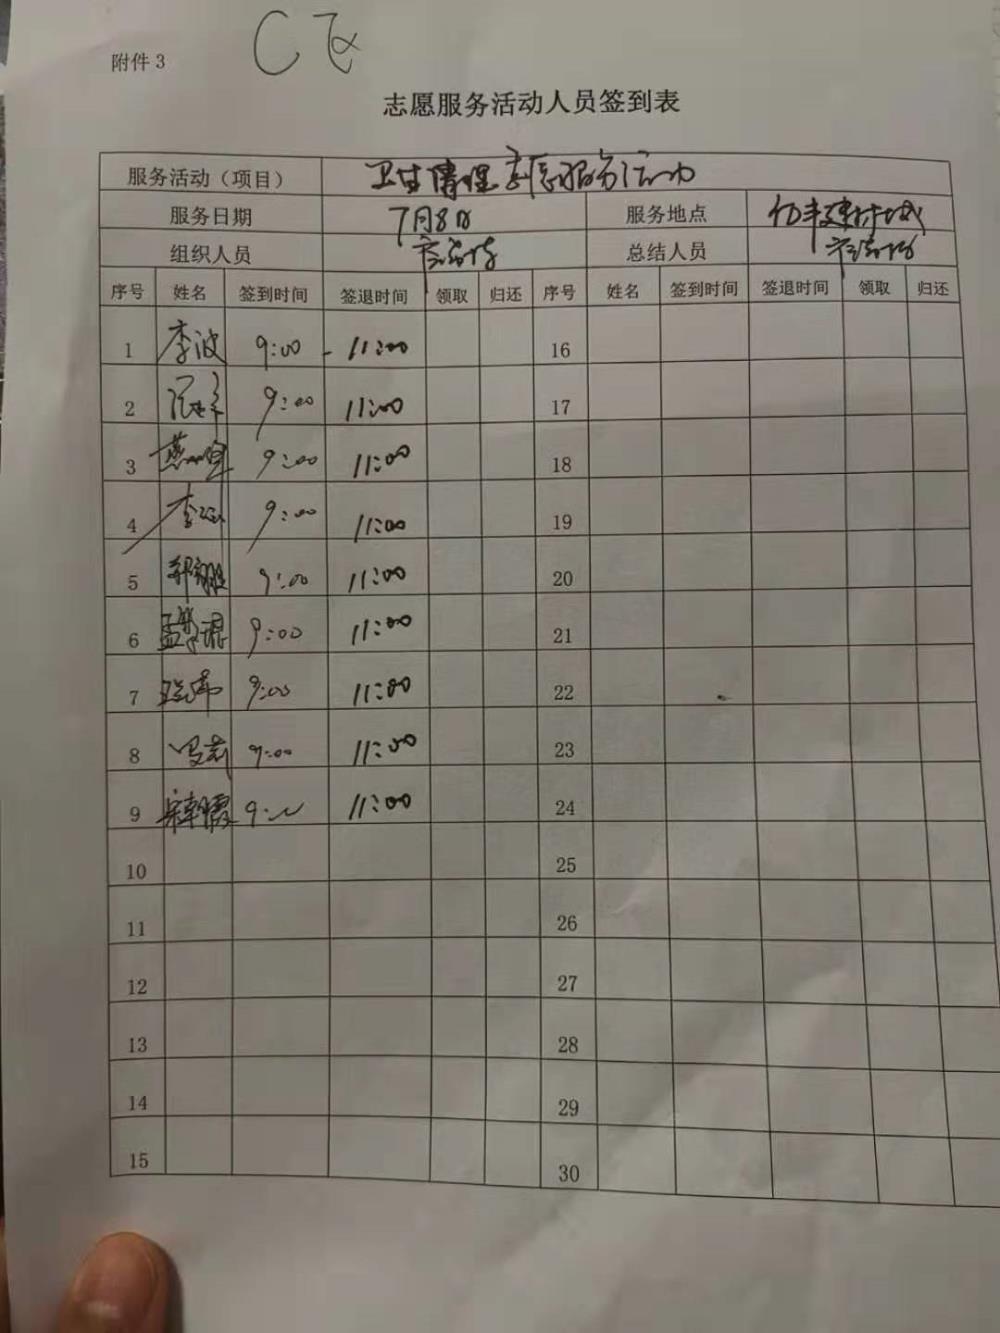 C飞
附件 3
志愿服务活动人员签到表
服务活动（项目） 卫生清理志愿服务活动
服务日期 7月8日 服务地点 亿丰建材城
组织人员 总结人员
序号 姓名 签到时间 签退时间 领取 归还 序号 姓名 签到时间 签退时间 领取 归还
1 李波 9:00 - 11:00 16
2 9:00 11:00 17
3 9:00 11:00 18
4 9:00 11:00 19
5 9:00 11:00 20
6 9:00 11:00 21
7 9:00 11:00 22
8 9:00 11:00 23
9 11:00 24
10 25
11 26
12 27
13 28
14 29
15 30